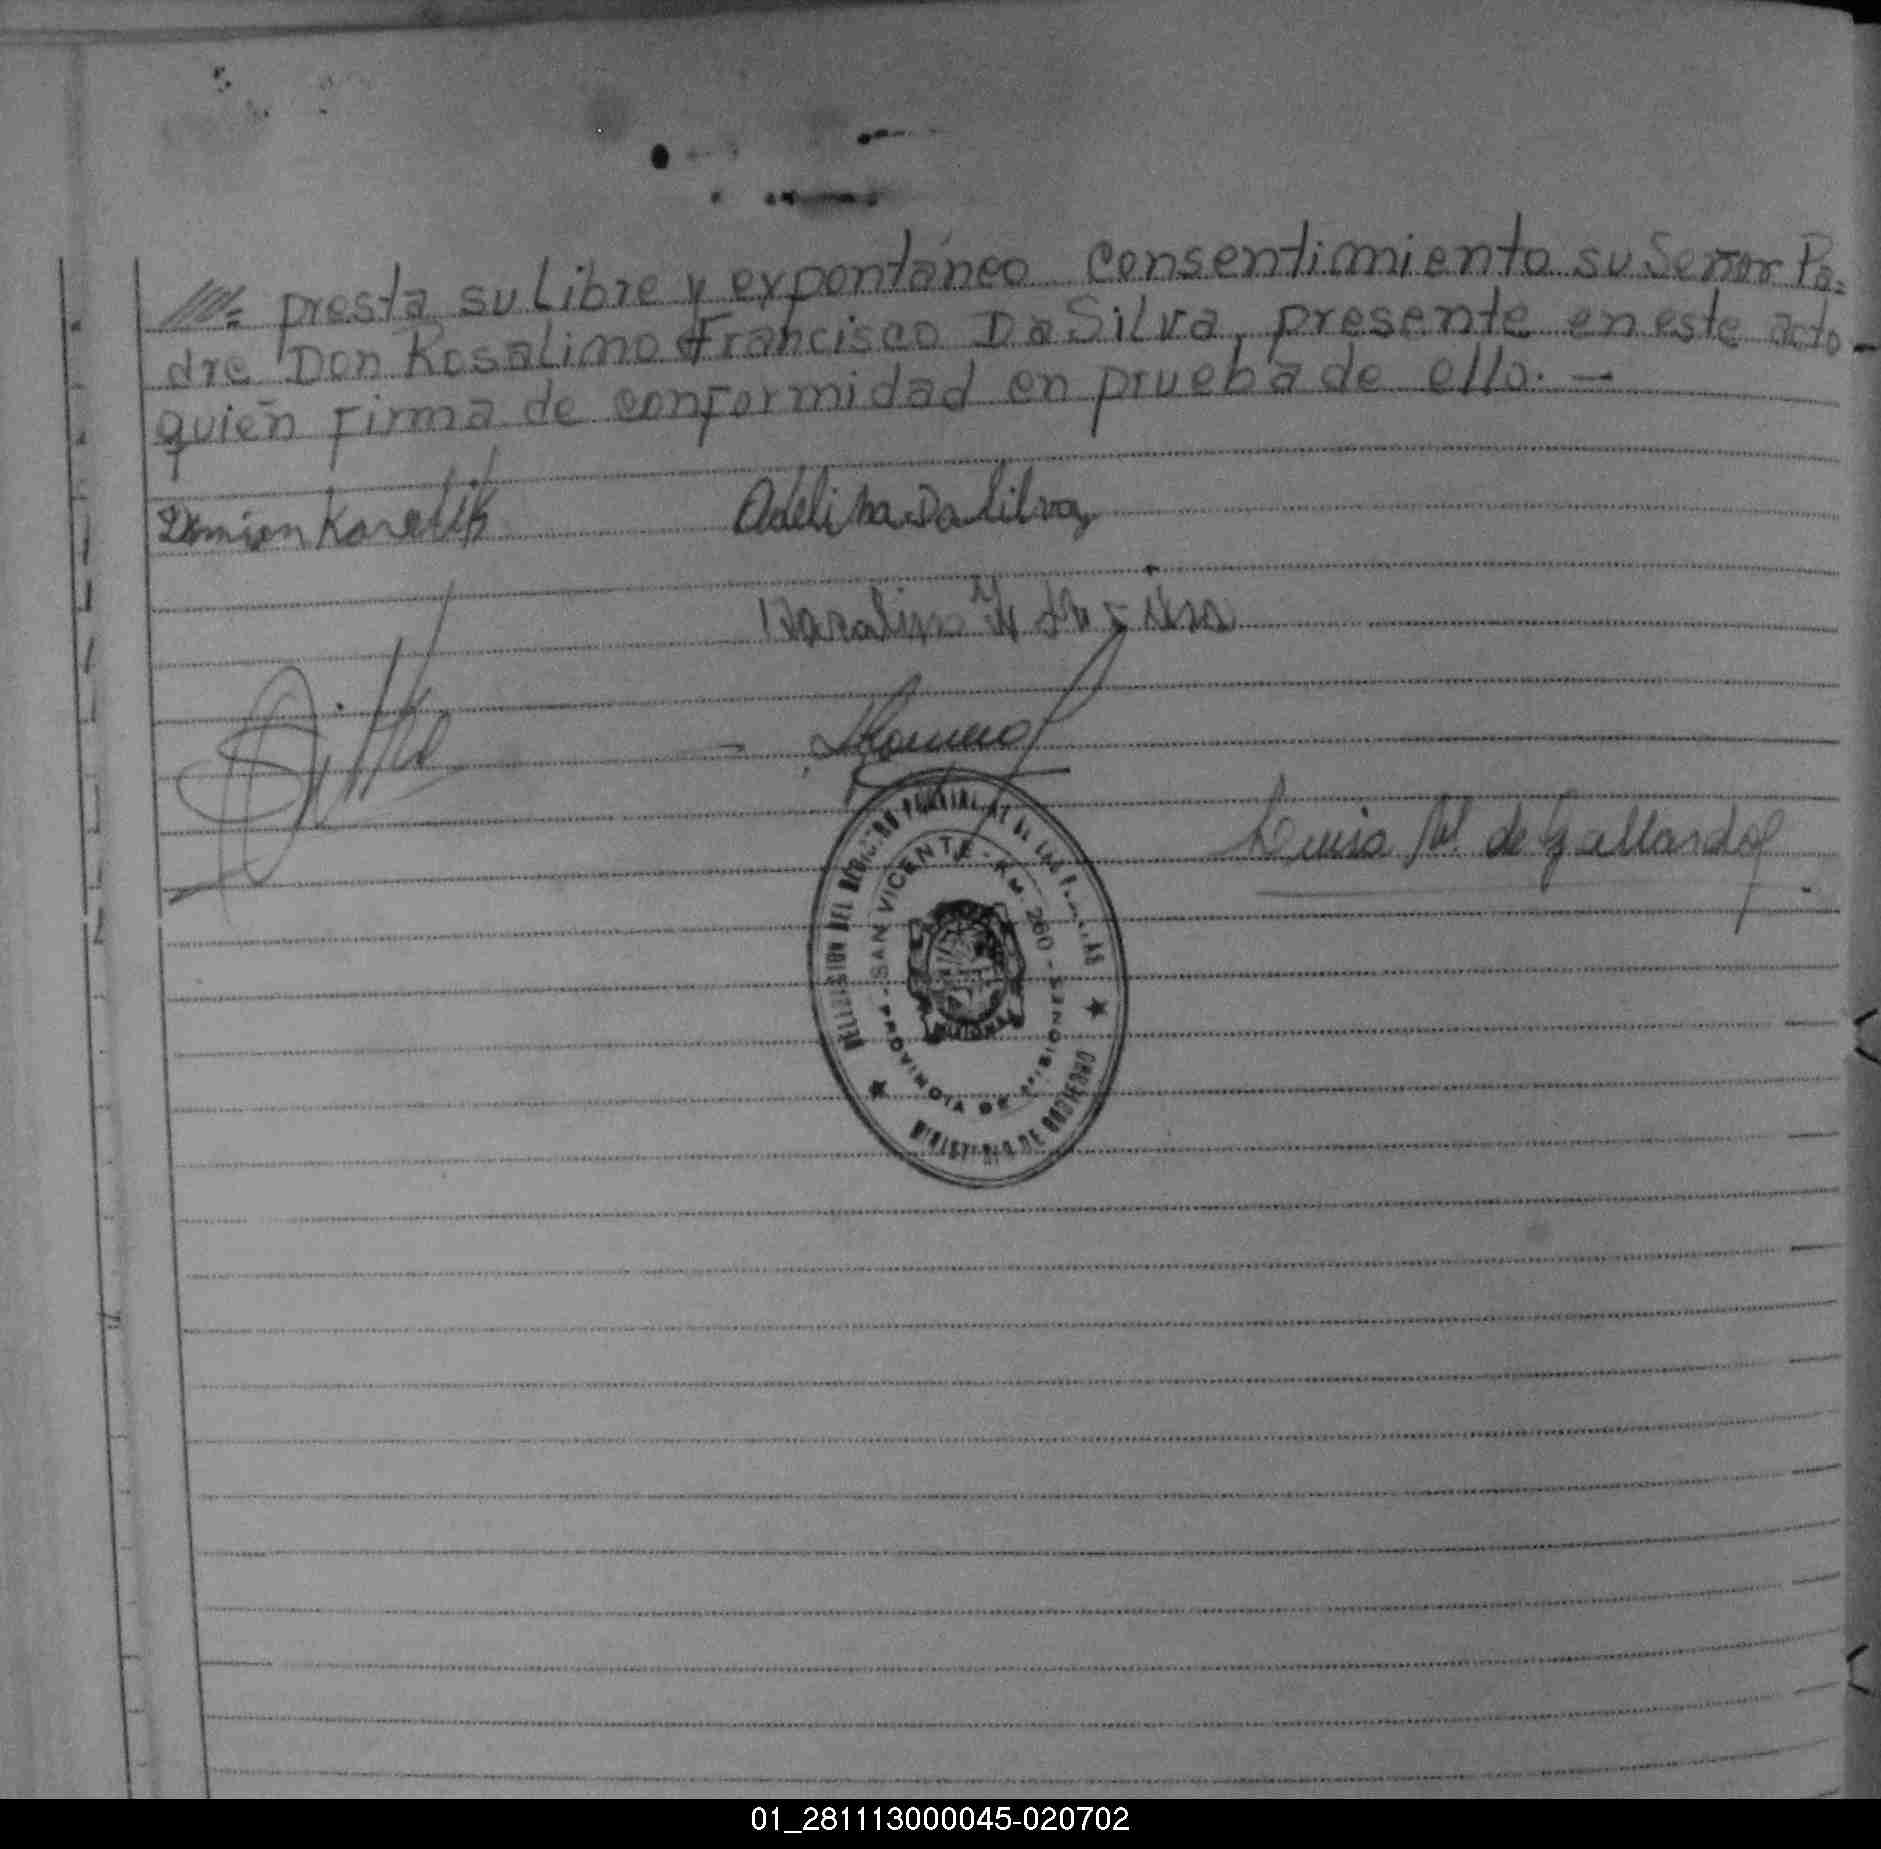 ///= presta su libre y expontáneo consentimiento su Señor Pa=
dre Don Rosalino Francisco Da Silva, presente en este acto -
quién firma de conformidad en prueba de ello. -
Demian Karelik
Adelina Da Silva
Luisa M. de Gallardo
DELEGACION DEL REGISTRO PROVINCIAL DE DE LAS PERSONAS
SAN VICENTE - KM. 260 - MISIONES
- PROVINCIA DE MISIONES
MINISTERIO DE GOBIERNO
01_281113000045-020702